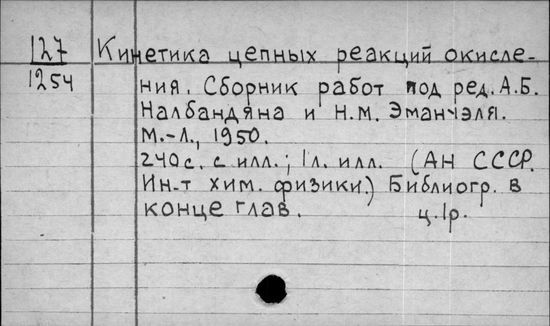 127 Кинетика цепных реакций окисле-
1254 ния. Сборник работ под ред. А.Б.
Налбандяна и Н.М. Эмануэля.
М.-Л., 1950.
240 с. с илл.; 1 л. илл. (АН СССР.
Ин-т хим. физики.) Библиогр. в
конце глав. ц. 1р.